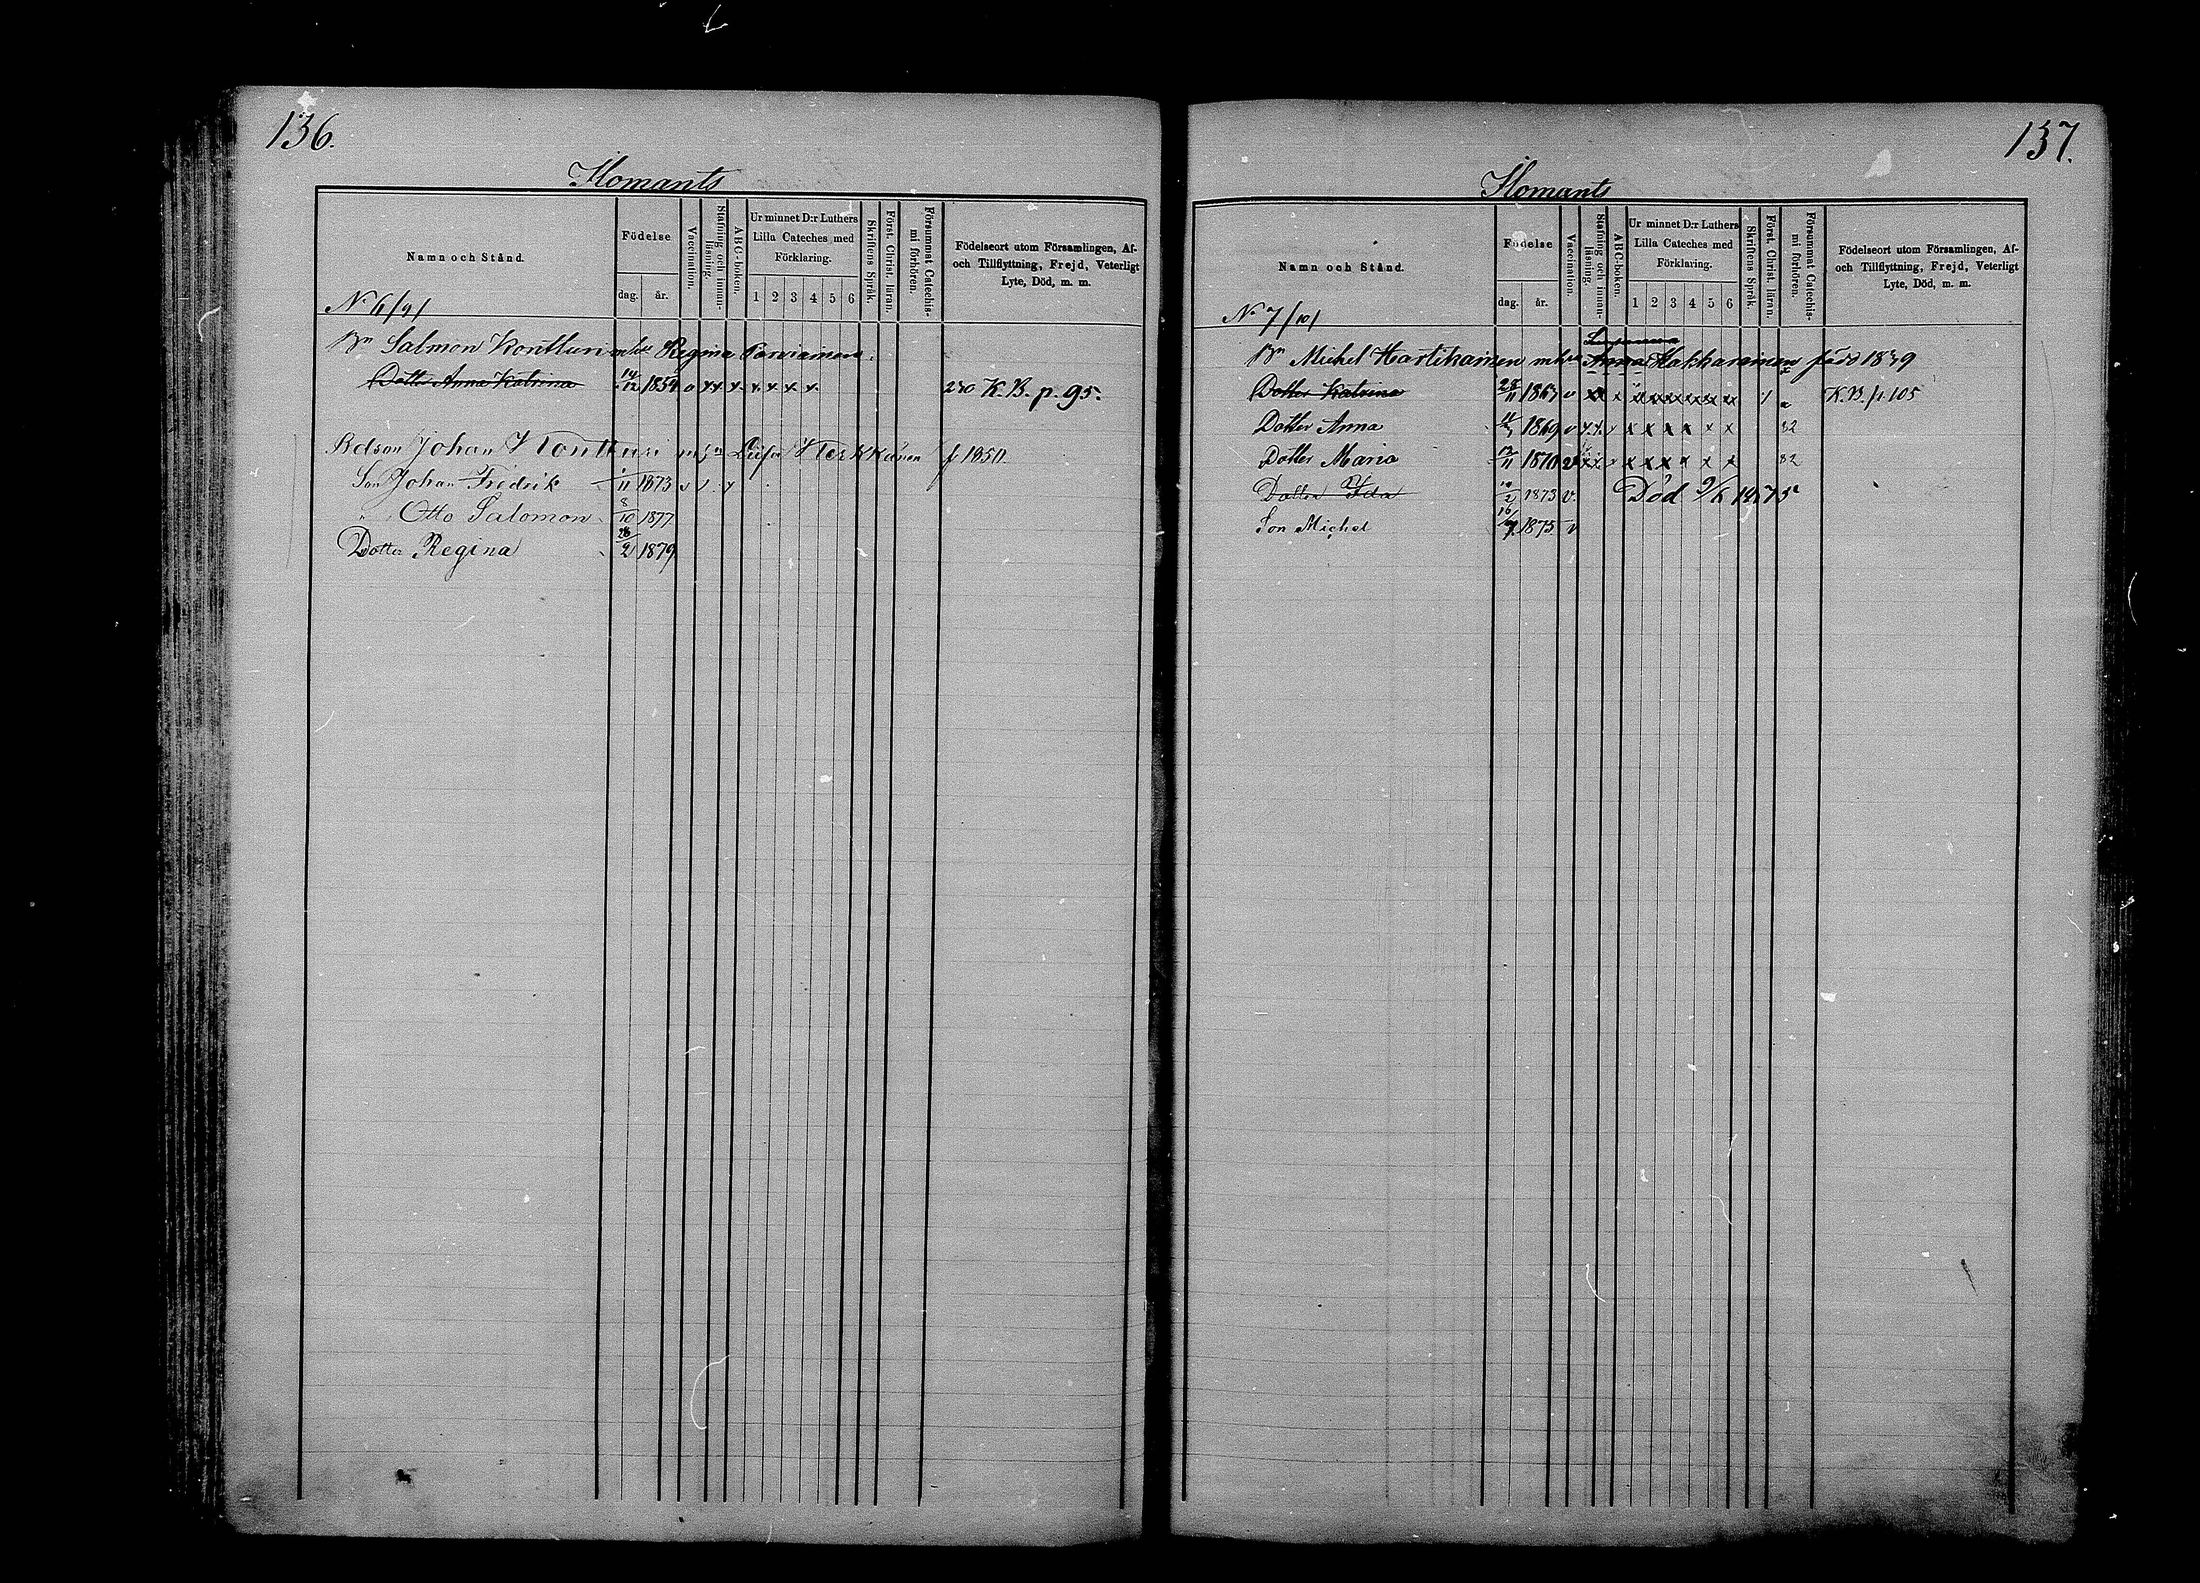 136.
Ilomants
Namn och Stånd.
Födelse
dag. år.
Vaccination.
Stafning och innanläsning.
ABC-boken.
Ur minnet D:r Luthers Lilla Cateches med Förklaring.
1 2 3 4 5 6
Skriftens Språk.
Först. Christ. läran.
Försummat Catechismi förhören.
Födelseort utom Församlingen, Af-
och Tillflyttning, Frejd, Veterligt
Lyte, Död, m. m.
No 6/9/
Bn Salmon Kontturi mhu Regina Parviainen
Dotter Anna Katrina 14/12 1854 v x x x x x x x K. B. p. 95.
Bdson Johan Kontturi Herkkinen f 1850.
Son Johan Fredrik 1/11 1873
" Otto Salomon 8/10 1877
Dotter Regina 28/2 1879
137.
Ilomants
Namn och Stånd.
Födelse
dag. år.
Vaccination.
Stafning och innanläsning.
ABC-boken.
Ur minnet D:r Luthers Lilla Cateches med Förklaring.
1 2 3 4 5 6
Skriftens Språk.
Först. Christ. läran.
Försummat Catechismi förhören.
Födelseort utom Församlingen, Af-
och Tillflyttning, Frejd, Veterligt
Lyte, Död, m. m.
No 7/10/
Bn Michel Hartikainen mhu Anna Kakkarainen född 1839
Dotter Katrina 28/11 1867 v K. B. p. 105
Dotter Anna 1869 v x x x x x x 82
Dotter Maria 12/11 1870 v x x x x x x 82
Dotter Ida 10/2 1873 v. Död 9/6 1875
Son Michel 16/7 1875 v